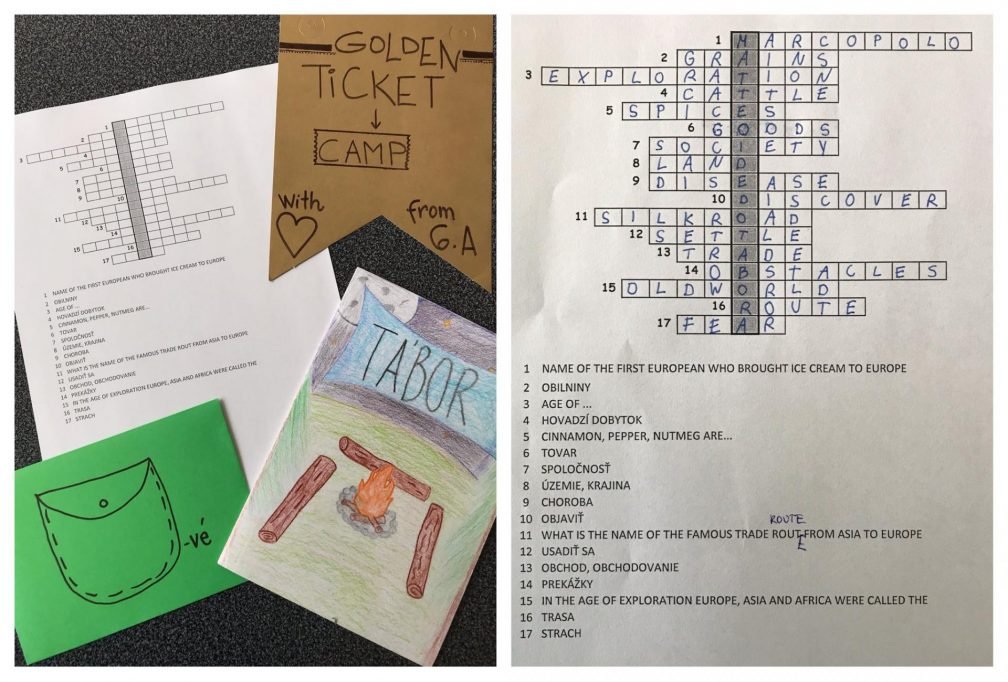 GOLDEN
TICKET
CAMP
with from
G.A
1
2
3
4
5
6
7
8
9
10
11
12
13
14
15
16
17
1 NAME OF THE FIRST EUROPEAN WHO BROUGHT ICE CREAM TO EUROPE
2 OBILNINY
3 AGE OF ...
4 HOVADZÍ DOBYTOK
5 CINNAMON, PEPPER, NUTMEG ARE...
6 TOVAR
7 SPOLOČNOSŤ
8 ÚZEMIE, KRAJINA
9 CHOROBA
10 OBJAVIŤ
11 WHAT IS THE NAME OF THE FAMOUS TRADE ROUT FROM ASIA TO EUROPE
12 USADIŤ SA
13 OBCHOD, OBCHODOVANIE
14 PREKÁŽKY
15 IN THE AGE OF EXPLORATION EUROPE, ASIA AND AFRICA WERE CALLED THE
16 TRASA
17 STRACH
TÁBOR
-vé
1 MARCOPOLO
2 GRAINS
3 EXPLORATION
4 CATTLE
5 SPICES
6 GOODS
7 SOCIETY
8 LAND
9 DISEASE
10 DISCOVER
11 SILKROAD
12 SETTLE
13 TRADE
14 OBSTACLES
15 OLDWORLD
16 ROUTE
17 FEAR
1 NAME OF THE FIRST EUROPEAN WHO BROUGHT ICE CREAM TO EUROPE
2 OBILNINY
3 AGE OF ...
4 HOVADZÍ DOBYTOK
5 CINNAMON, PEPPER, NUTMEG ARE...
6 TOVAR
7 SPOLOČNOSŤ
8 ÚZEMIE, KRAJINA
9 CHOROBA
10 OBJAVIŤ
ROUTE
11 WHAT IS THE NAME OF THE FAMOUS TRADE ROUT FROM ASIA TO EUROPE
E
12 USADIŤ SA
13 OBCHOD, OBCHODOVANIE
14 PREKÁŽKY
15 IN THE AGE OF EXPLORATION EUROPE, ASIA AND AFRICA WERE CALLED THE
16 TRASA
17 STRACH